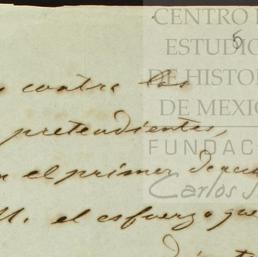 CENTRO
ESTUDIO
DE HISTOR
DE MEXIC
FUNDAC
Carlos S
5
contra los
pretendientes,
el primer
M. el esfuerzo que